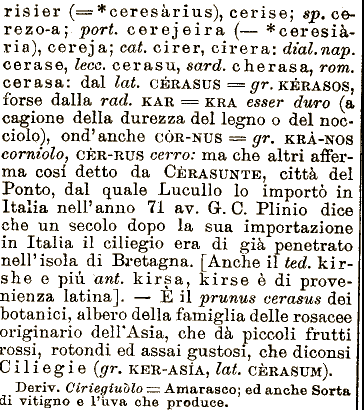 risier (= *ceresàrius), cerise; sp. ce-
rezo-a; port. cerejeira (— *ceresià-
ria), cereja; cat. cirer, cirera: dial. nap.
cerase, lecc. cerasu, sard. cherasa, rom.
cerasa: dal lat. CÈRASUS = gr. KÈRASOS,
forse dalla rad. KAR = KRA esser duro (a
cagione della durezza del legno o del noc-
ciolo), ond'anche CÒR-NUS = gr. KRÀ-NOS
corniolo, CÈR-RUS cerro: ma che altri affer-
ma così detto da CERASUNTE, città del
Ponto, dal quale Lucullo lo importò in
Italia nell'anno 71 av. G. C. Plinio dice
che un secolo dopo la sua importazione
in Italia il ciliegio era di già penetrato
nell'isola di Bretagna. [Anche il ted. kir-
she e più ant. kirsa, kirse è di prove-
nienza latina]. — È il prunus cerasus dei
botanici, albero della famiglia delle rosacee
originario dell'Asia, che dà piccoli frutti
rossi, rotondi ed assai gustosi, che diconsi
Ciliegie (gr. KER-ASÍA, lat. CÈRASUM).
Deriv. Ciriegiuòlo = Amarasco; ed anche Sorta
di vitigno e l'uva che produce.